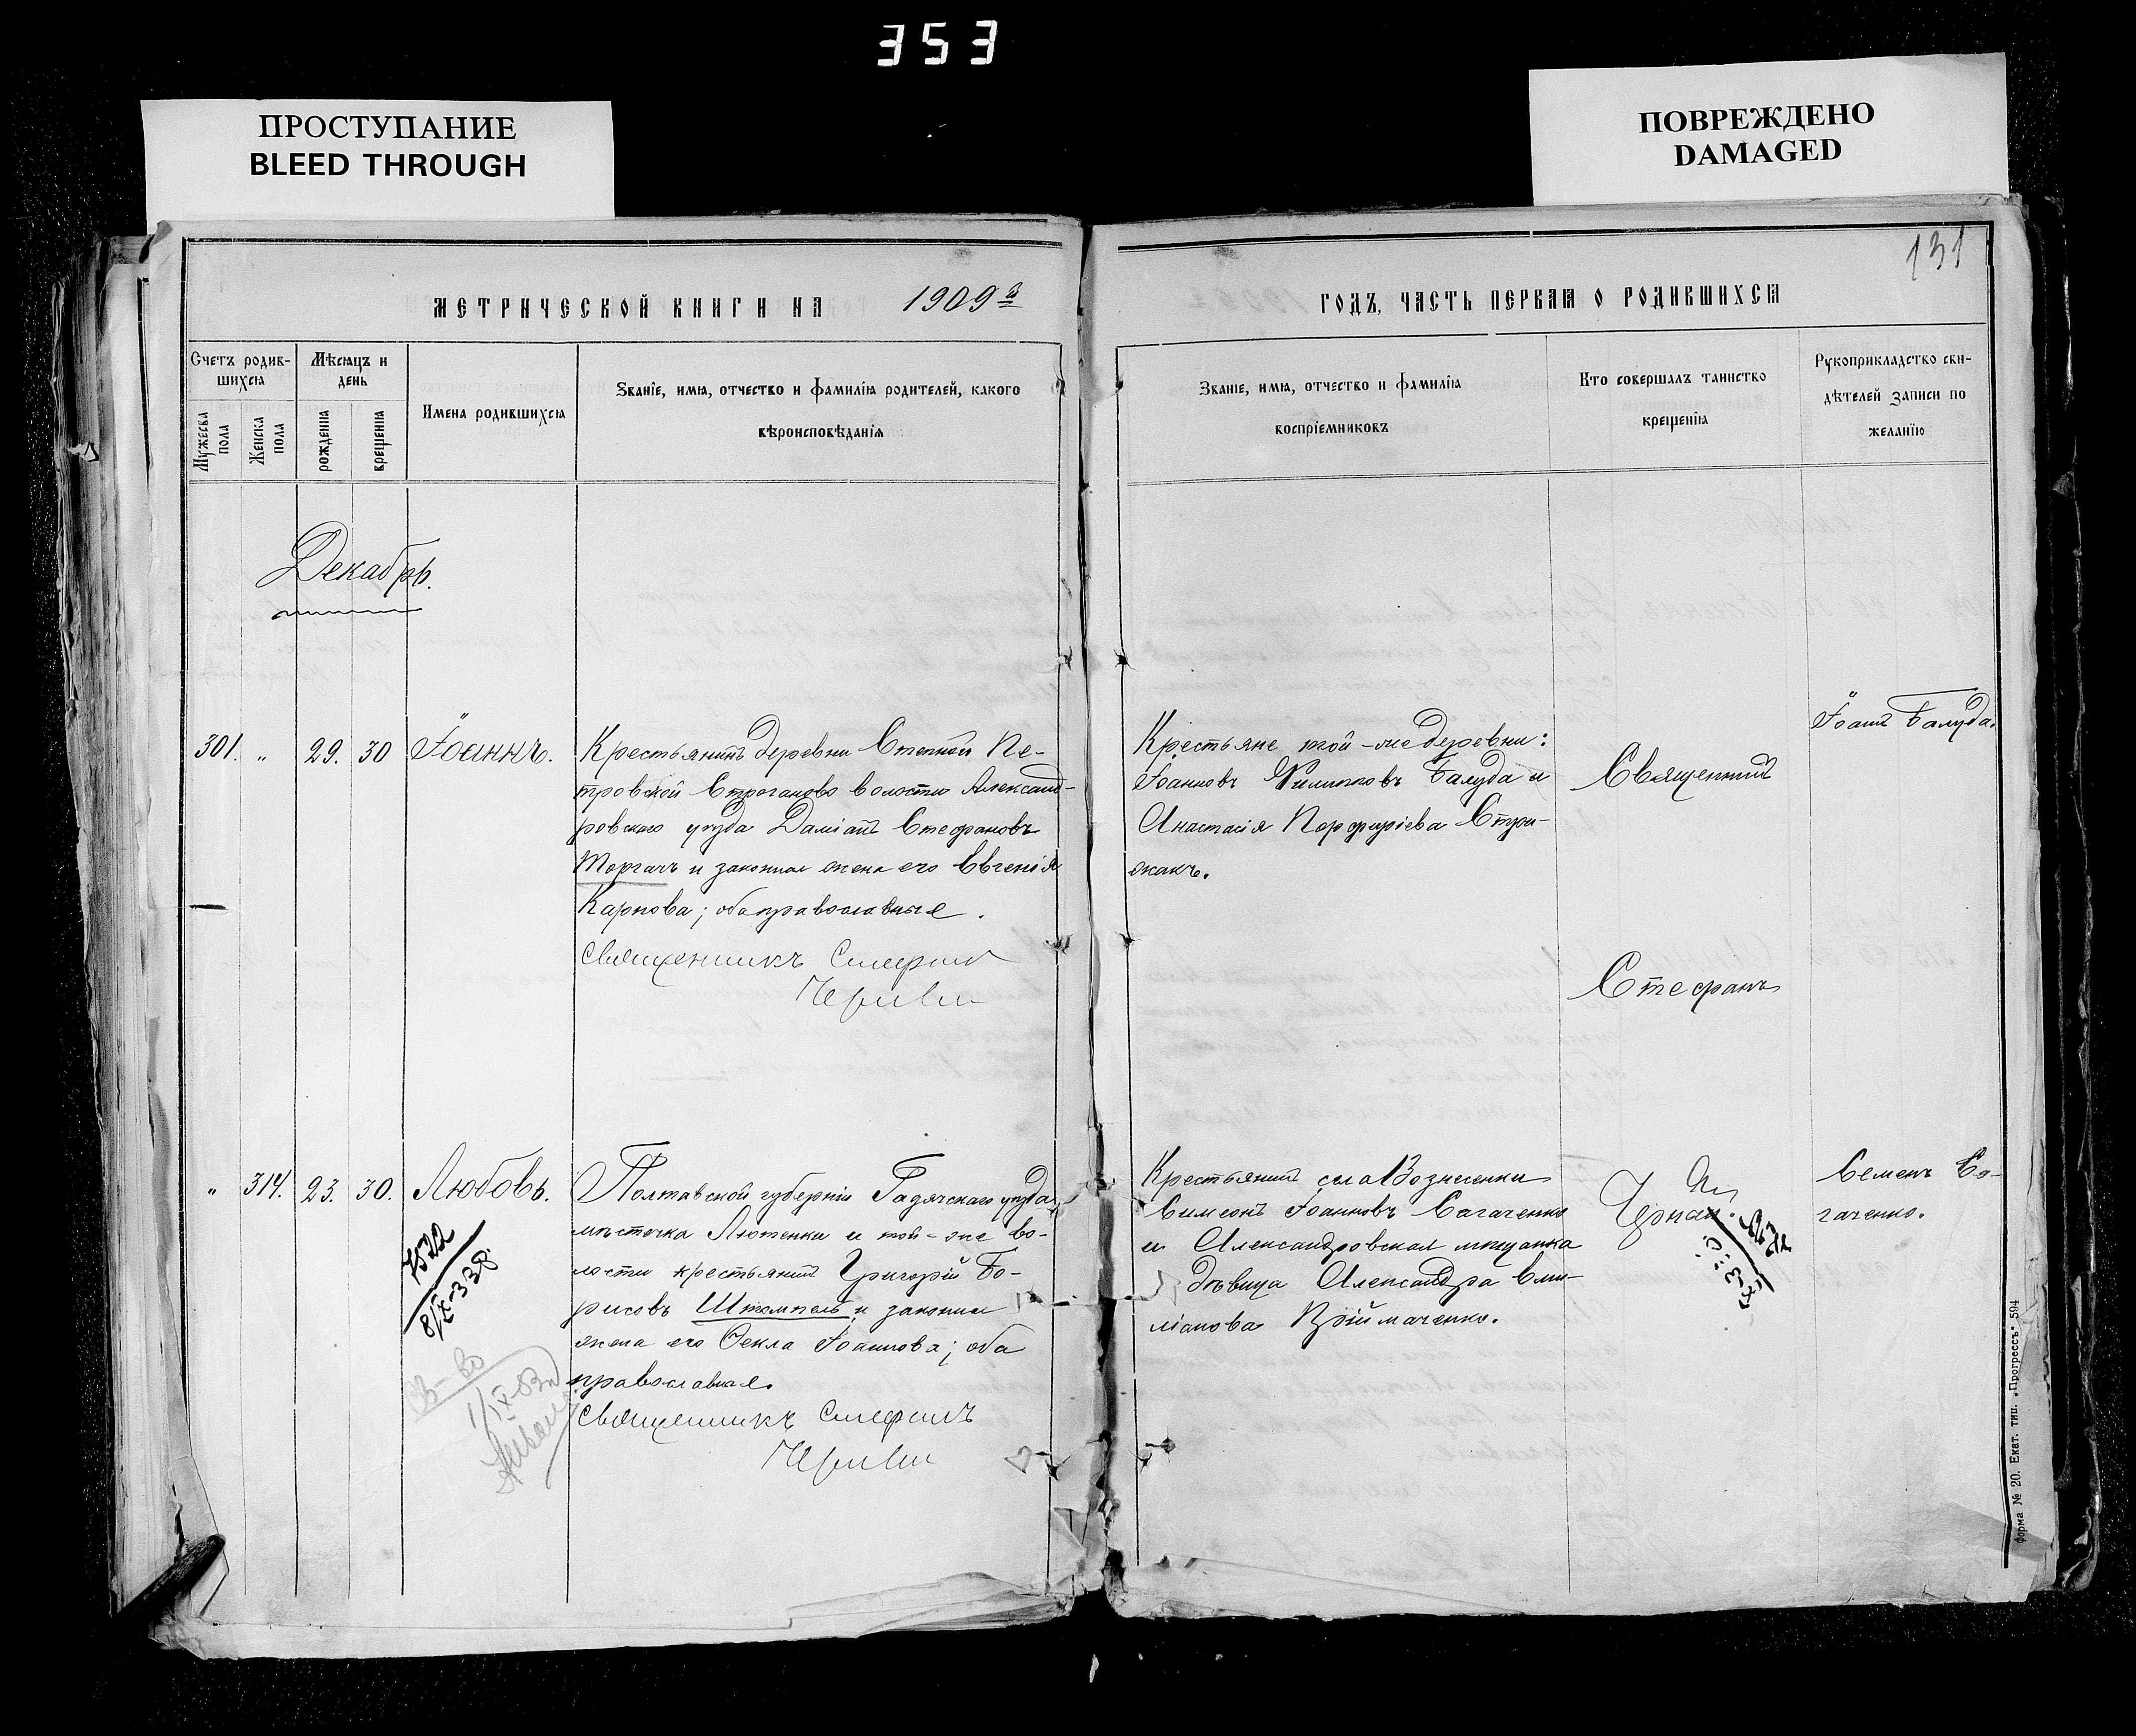 353
ПРОСТУПАНИЕ
BLEED THROUGH
ПОВРЕЖДЕНО
DAMAGED
131
МЕТРИЧЕСКОЙ КНИГИ НА 1909й
ГОДЪ, ЧАСТЬ ПЕРВАЯ О РОДИВШИХСЯ
Счетъ родив-
шихся
Мужеска
пола
Женска
пола
Мѣсяцъ и
день
рожденія
крещенія
Имена родившихся
Званіе, имя, отчество и фамилія родителей, какого
вѣроисповѣданія
Званіе, имя, отчество и фамилія
воспріемниковъ
Кто совершалъ таинство
крещенія
Рукоприкладство сви-
дѣтелей записи по
желанію
Декабрь.
301. „ 29. 30 Іоаннъ.
Крестьянинъ деревни Степной Пе-
тровской Строгановой волости Александ-
ровскаго уѣзда Даміанъ Стефановъ
Торгачъ и законная жена его Евгенія
Карпова; оба православные.
Священникъ Стефанъ
Крестьяне той-же деревни:
Іоаннъ Балуда и
Анастасія Порфиріева Стри-
жакъ.
Священникъ
Стефанъ
Іоаннъ Балуда.
„ 314. 23. 30. Любовь.
Полтавской губерніи Гадячскаго уѣзда,
мѣстечка Лютенки и той-же во-
лости крестьянинъ Григорій Бо-
рисовъ Штомпель и законная
жена его Ѳекла Іоаннова; оба
православные.
Священникъ Стефанъ
Крестьянинъ села Вознесенки
Симеонъ Іоанновъ Сагаченко
и Александровская мѣщанка
дѣвица Александра Еми-
ліанова Пріймаченко.
Семенъ Са-
гаченко.
Форма № 20. Екат. тип. „Прогрессъ" 594